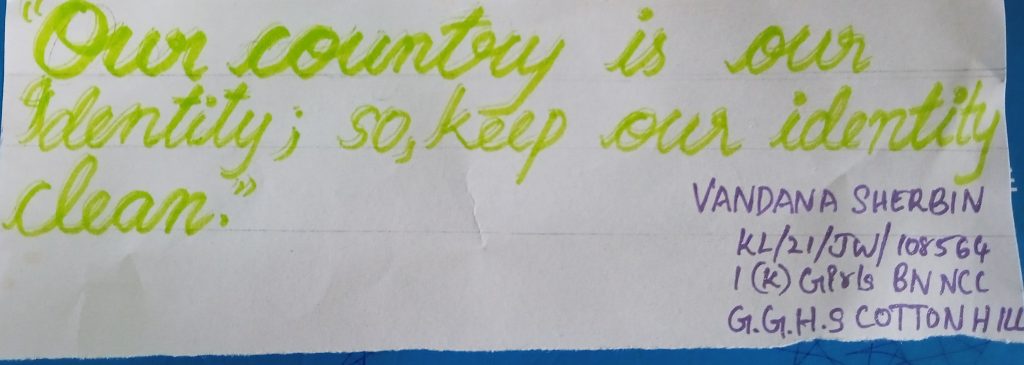 "Our country is our
Identity; so, keep our identity
clean."
VANDANA SHERBIN
KL/21/JW/108564
1 (K) Girls BN NCC
G.G.H.S COTTON HILL